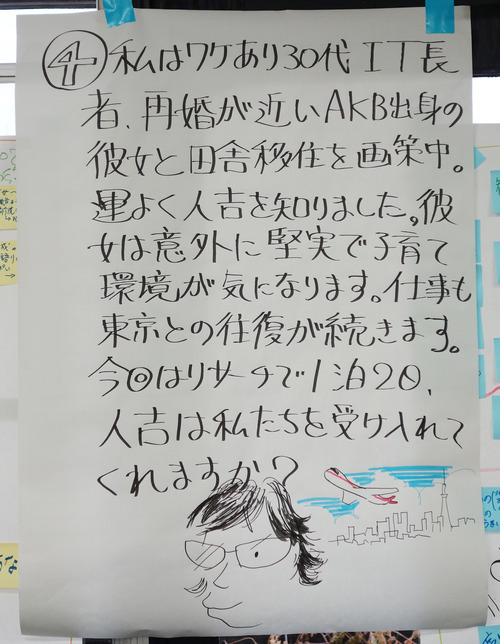 ④私はワケあり30代IT長
者、再婚が近いAKB出身の
彼女と田舎移住を画策中。
運よく人吉を知りました。彼
女は意外に堅実で子育て
環境が気になります。仕事も
東京との往復が続きます。
今回はリサーチで1泊2日、
人吉は私たちを受け入れて
くれますか?